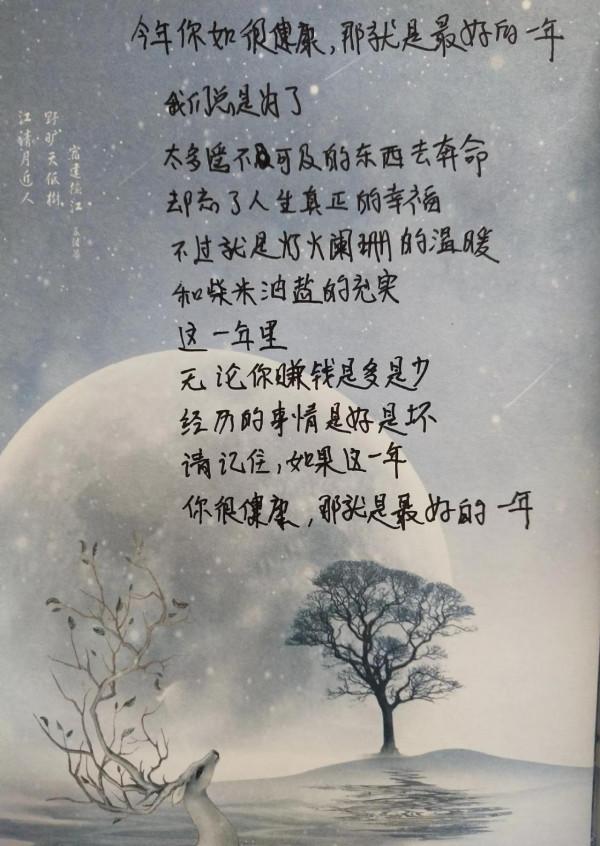 今年你如很健康,那就是最好的一年
我们总是为了
太多遥不及可及的东西去奔命
却忘了人生真正的幸福
不过就是灯火阑珊的温暖
和柴米油盐的充实
这一年里
无论你赚钱是多是少
经历的事情是好是坏
请记住,如果这一年
你很健康,那就是最好的一年
宿建德江
野旷天低樹
江清月近人